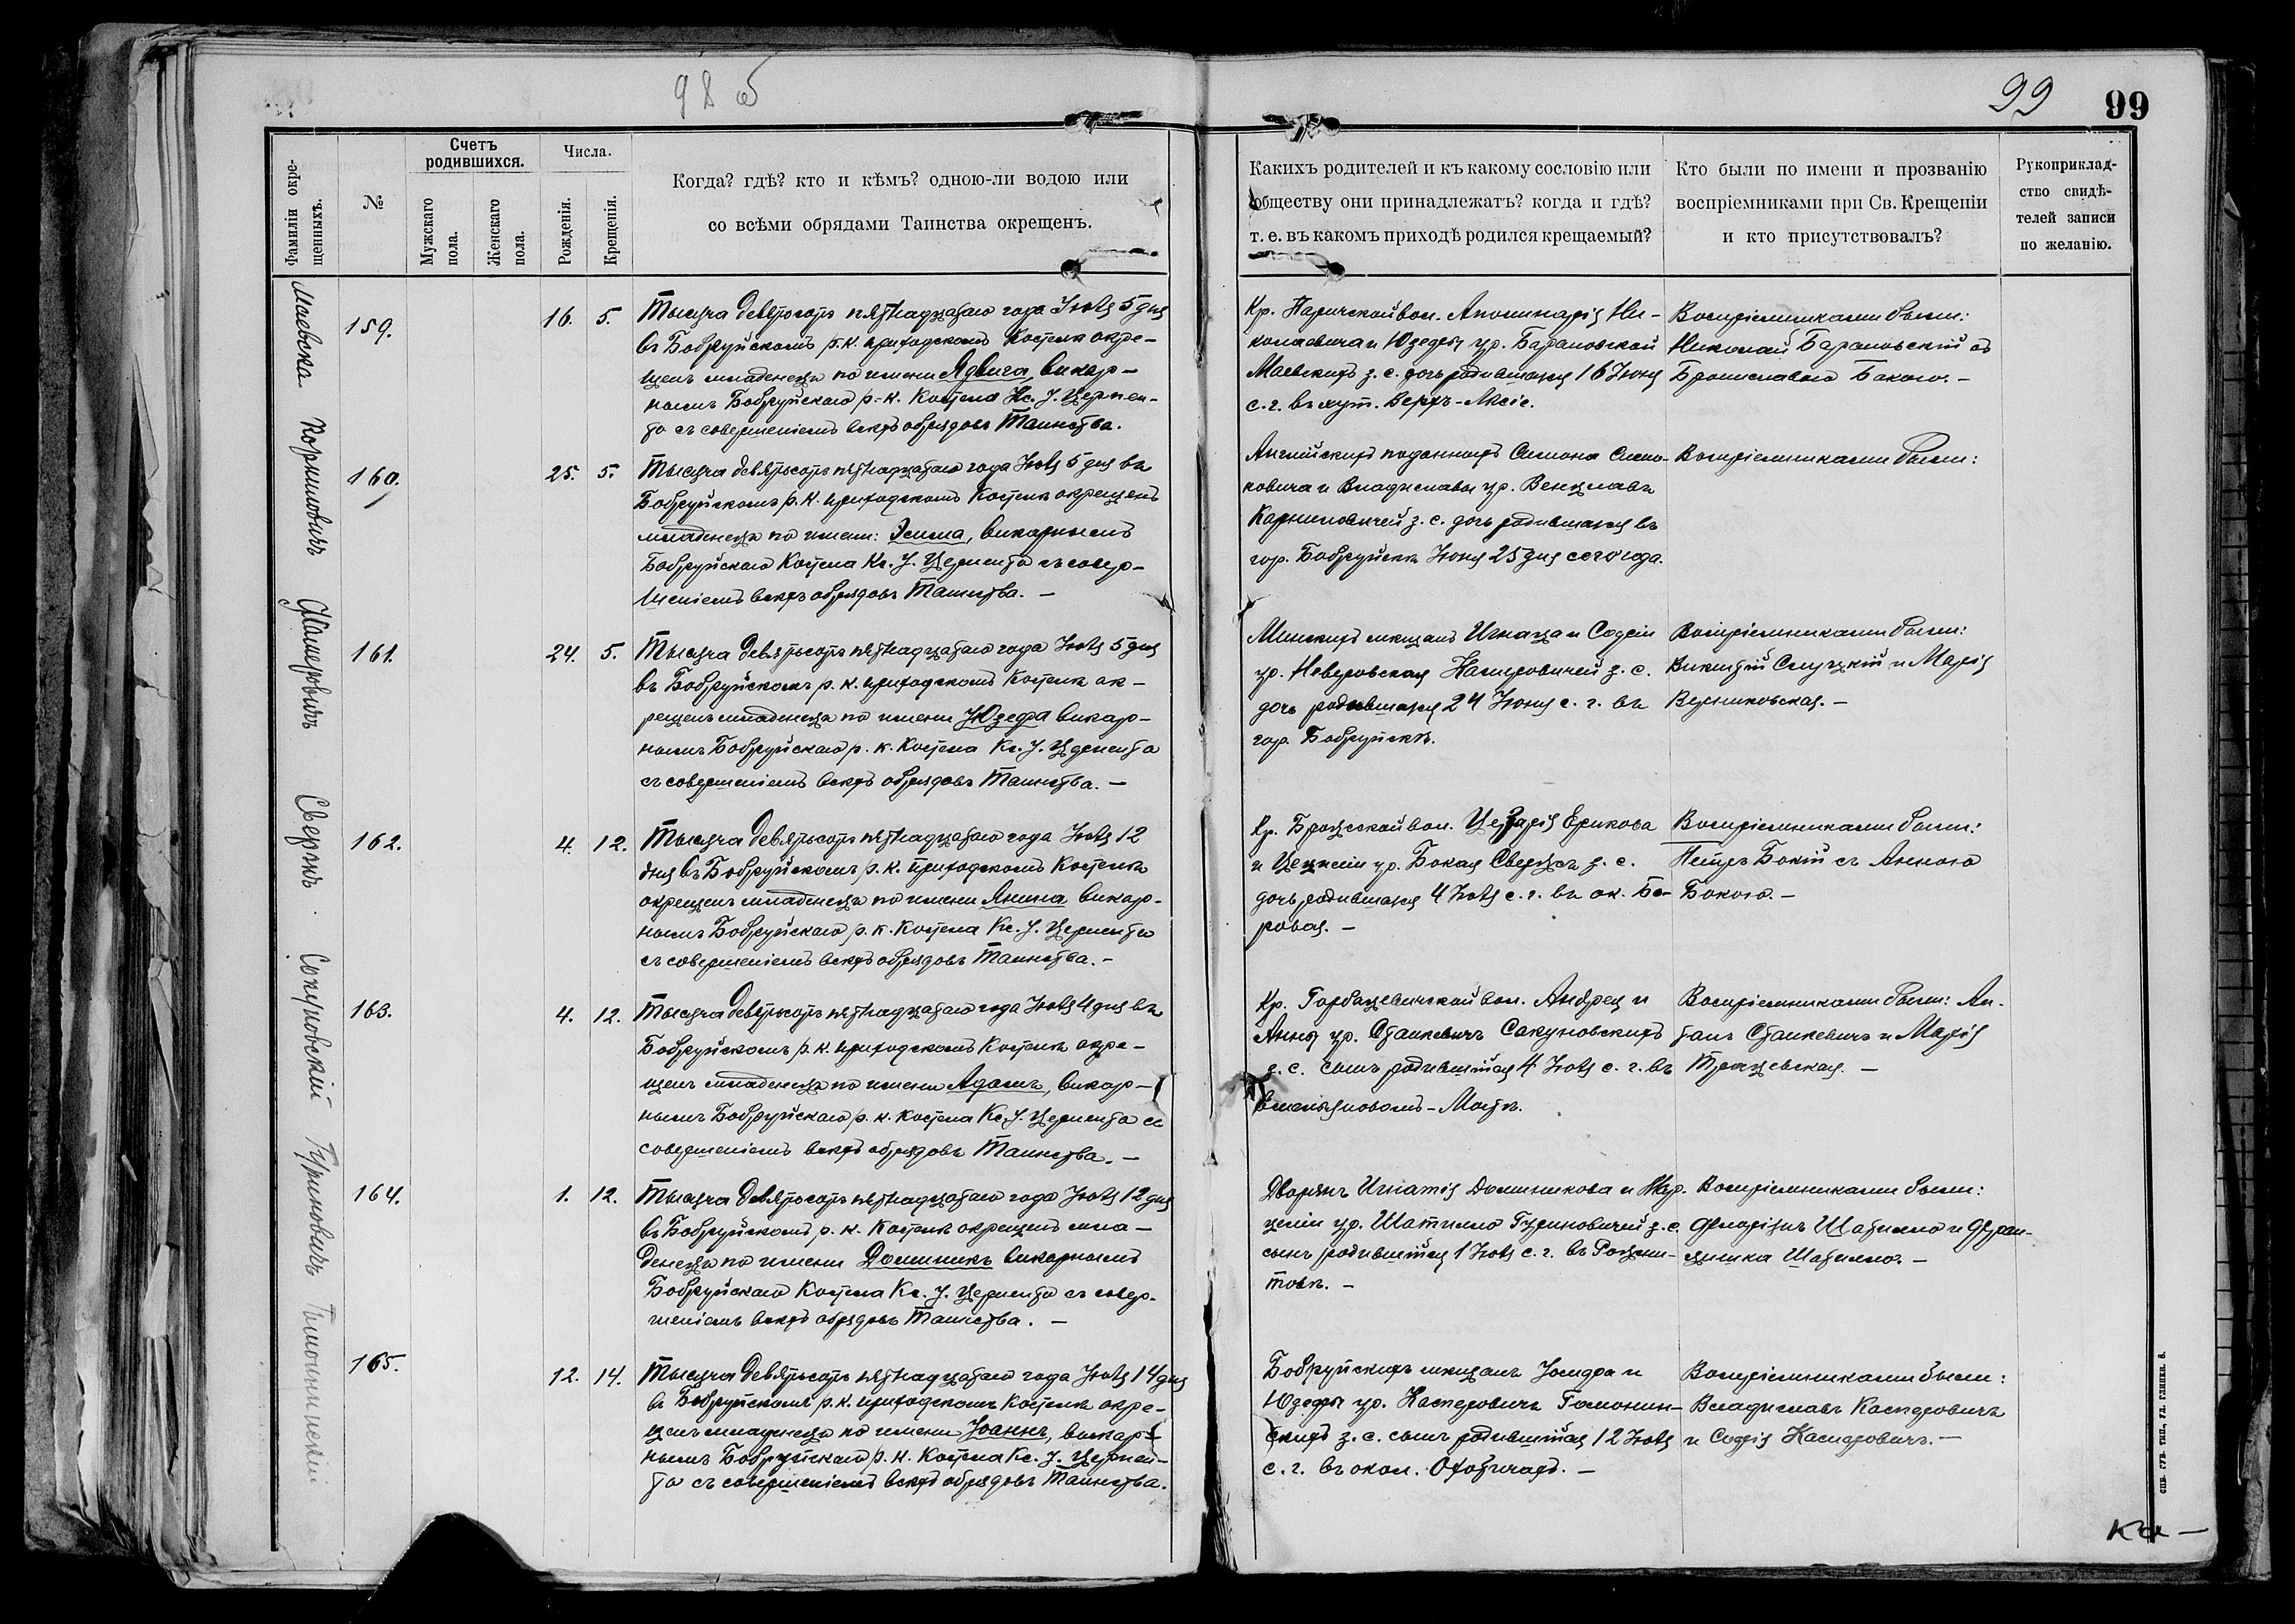 98 об
99
99
Фамиліи окре-
щенныхъ.
№
Счетъ
родившихся.
Мужскаго
пола.
Женскаго
пола.
Числа.
Рожденія.
Крещенія.
Когда? гдѣ? кто и кѣмъ? одною-ли водою или
со всѣми обрядами Таинства окрещенъ.
Какихъ родителей и къ какому сословію или
обществу они принадлежатъ? когда и гдѣ?
т. е. въ какомъ приходѣ родился крещаемый?
Кто были по имени и прозванію
воспріемниками при Св. Крещеніи
и кто присутствовалъ?
Рукоприклад-
ство свидѣ-
телей записи
по желанію.
Маевска.
159.
16. 5.
Тысяча девятьсотъ пятнадцатаго года Іюля 5 дня
въ Бобруйскомъ р.-к. приходскомъ Костелѣ окре-
щенъ младенецъ по имени Ядвига, викар-
нымъ Бобруйскаго р.-к. Костела Кс. І. Церпен-
то съ совершеніемъ всѣхъ обрядовъ Таинства.
Кр. Паричской вол. Аполинарія Ни-
колаевича и Юзефы ур. Барановской
Маевскихъ з. с. дочь родившаяся 16 Іюня
с. г. въ хут. Верхъ-
Воспріемниками были:
Николай Барановскій съ
Брониславою Бакою. –
160.
25. 5.
Тысяча девятьсотъ пятнадцатаго года Іюля 5 дня въ
Бобруйскомъ р. к. приходскомъ Костелѣ окрещенъ
младенецъ по имени: викарнымъ
Бобруйскаго Костела Кс. І. Церпенто съ совер-
шеніемъ всѣхъ обрядовъ Таинства. –
Англійскихъ поданныхъ Симона Симо-
новича и Владиславы ур. Венцлавъ
з. с. дочь родившаяся въ
гор. Бобруйскѣ Іюня 25 дня сего года.
Воспріемниками были:
161.
24. 5.
Тысяча девятьсотъ пятнадцатаго года Іюля 5 дня
въ Бобруйскомъ р. к. приходскомъ Костелѣ ок-
рещенъ младенецъ по имени Юзефа викар-
нымъ Бобруйскаго р. к. Костела Кс. І. Церпенто
съ совершеніемъ всѣхъ обрядовъ Таинства. –
Минскихъ мѣщанъ Игнаца и Софіи
ур. Неверовская з. с.
дочь родившаяся 24 Іюня с. г. въ
гор. Бобруйскѣ.
Воспріемниками были:
Викентій Слуцкій и Марія
Верниковская. –
Свержъ.
162.
4. 12.
Тысяча девятьсотъ пятнадцатаго года Іюля 12
дня въ Бобруйскомъ р. к. приходскомъ Костелѣ
окрещенъ младенецъ по имени Янина викар-
нымъ Бобруйскаго р. к. Костела Кс. І. Церпенто
съ совершеніемъ всѣхъ обрядовъ Таинства. –
Кр. Брожской вол. Цезарія Ерикова
и ур. Бокая з. с.
дочь родившаяся 4 Іюля с. г. въ ок. Бо-
ровая. –
Воспріемниками были:
Петръ Бокій съ Анною
Бокою. –
Сокуновскій
163.
4. 12.
Тысяча девятьсотъ пятнадцатаго года Іюля 4 дня въ
Бобруйскомъ р. к. приходскомъ Костелѣ окре-
щенъ младенецъ по имени Адамъ, викар-
нымъ Бобруйскаго р. к. Костела Кс. І. Церпенто съ
совершеніемъ всѣхъ обрядовъ Таинства. –
Кр. Горбацевичской вол. Андрея и
Анны ур. Станкевичъ Сакуновскихъ
з. с. сынъ родившійся 4 Іюля с. г. въ
Воспріемниками были: Ан-
тонъ Станкевичъ и Марія
Трацевская. –
Гуриновичъ
164.
1. 12.
Тысяча девятьсотъ пятнадцатаго года Іюля 12 дня
въ Бобруйскомъ р. к. Костелѣ окрещенъ мла-
денецъ по имени Доминикъ викарнымъ
Бобруйскаго Костела Кс. І. Церпенто съ совер-
шеніемъ всѣхъ обрядовъ Таинства. –
Дворянъ Игнатія Доминикова и
ур. Шатилло Гуриновичей з. с.
сынъ родившійся 1 Іюля с. г. въ
Воспріемниками были:
Флоріанъ Шатилло и Фран-
цишка Шатилло. –
165.
12. 14.
Тысяча девятьсотъ пятнадцатаго года Іюля 14 дня
въ Бобруйскомъ р. к. приходскомъ Костелѣ окре-
щенъ младенецъ по имени Іоаннъ, викар-
нымъ Бобруйскаго р. к. Костела Кс. І. Церпен-
то съ совершеніемъ всѣхъ обрядовъ Таинства.
Бобруйскихъ мѣщанъ Іосифа и
Юзефы ур. Касперовичъ
з. с. сынъ родившійся 12 Іюля
с. г. въ окол. Охотичахъ. –
Воспріемниками были:
Владиславъ Касперовичъ
и Софія Касперовичъ. –
спб. губ. тип., ул. глинки. 8.